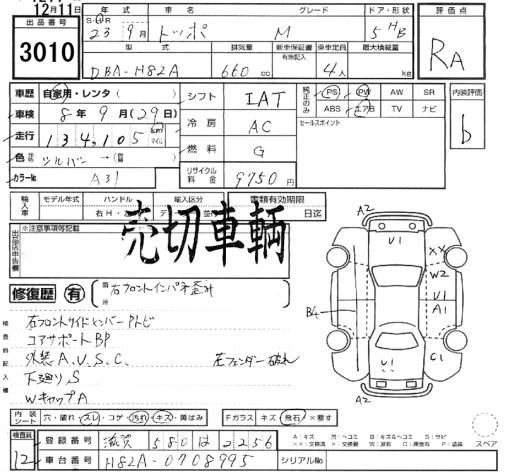 12月11日
出品番号 3010
年式 車名 グレード ドア・形状 評価点
S・H 23 9月 トッポ M 5 HB RA
型式 排気量 新車保証書 有無記入 乗車定員 最大積載量
DBA-H82A 660 cc 4人 kg
車歴 自家用・レンタ ( ) シフト IAT 純正のみ PS PW AW SR 内装評価 b
車検 8年 9月 (29日) 冷房 AC ABS エアB TV ナビ
走行 134,105 km マイル 燃料 G セールスポイント
色 シルバー →(
カラーNo A31 リサイクル料金 9750円
輸入車 モデル年式 ハンドル 輸入区分 書類有効期限
右H・左 日迄
売切車輌
出品店申告欄 ※注意事項等記載
修復歴 有 箇所 右フロントインパネ歪み
検査員記入欄
右フロントサイドメンバー
コアサポートBP
外装A、U、S、C、 左フェンダー破れ
下廻りS
WキャップA
A2
U1
XX
W2
U1
A1
B4
U1
C1
A2
内装シート 穴・破れ・スレ・コゲ・汚れ・キズ・黄ばみ Fガラス キズ・飛石×要す
スペア
検査員 12 登録番号 滋賀 580 は 2256
車台番号 H82A-0708995 シリアルNo
A：キズ U：ヘコミ B：キズ&ヘコミ S：サビ